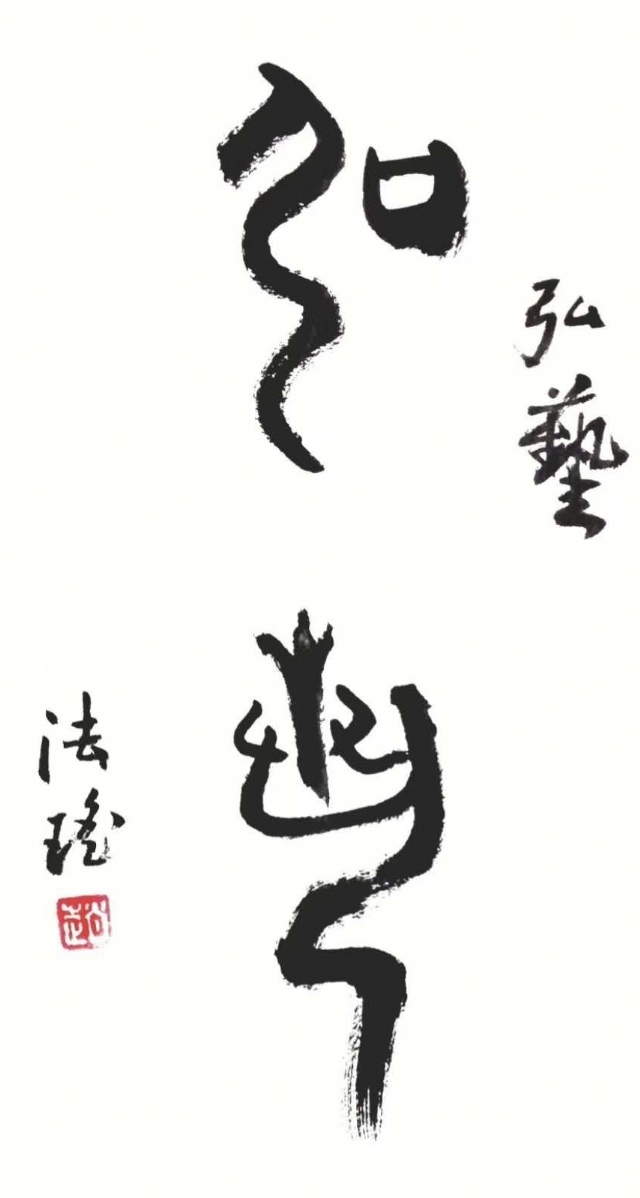 弘藝
弘藝
法瑤